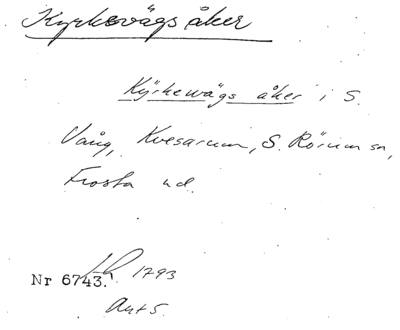 Kyrkevägs åker
Kÿrkewägs åker i S.
Vång, Kvesarum, S. Rörum sn,
Frosta hd.
Nr 6743. LR. 1793
Avt 5.